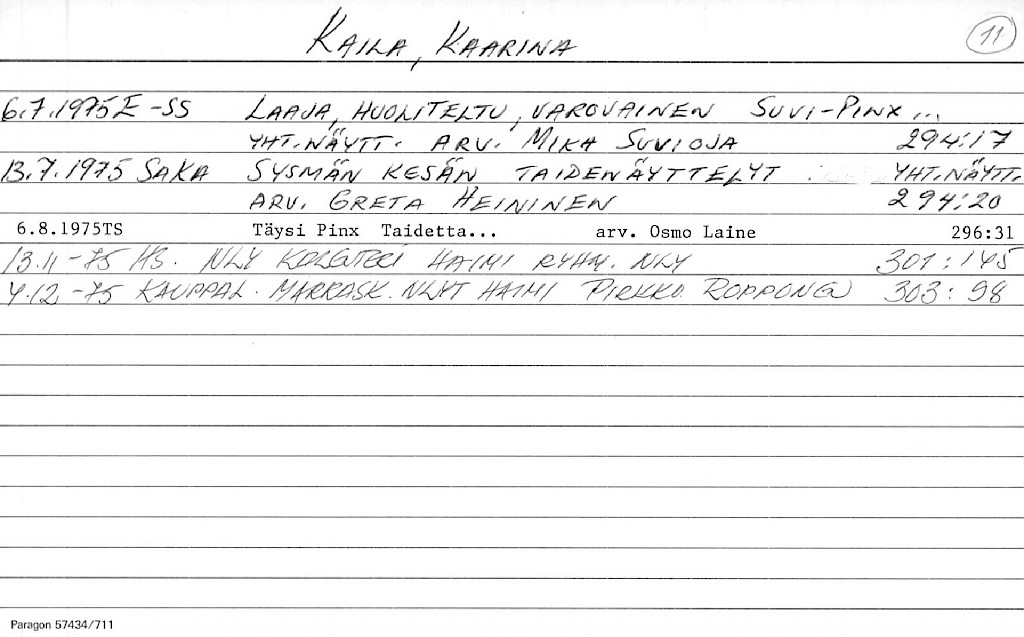 KAILA, KAARINA
11
6.7.1975 E-SS LAAJA, HUOLITELTU, VAROVAINEN SUVI-PINX...
YHT.NÄYTT. ARV. MIKA SUVIOJA 294:17
13.7.1975 SAKA SYSMÄN KESÄN TAIDENÄYTTELYT YHT.NÄYTT.
ARV. GRETA HEININEN 294:20
6.8.1975TS Täysi Pinx Taidetta... arv. Osmo Laine 296:31
13.11-75 HS. NLY HAIMI RYHM. NLY 301:145
4.12-75 KAUPPAL. MARRASK. NLYT HAIMI PIRKKO 303:98
Paragon 57434/711